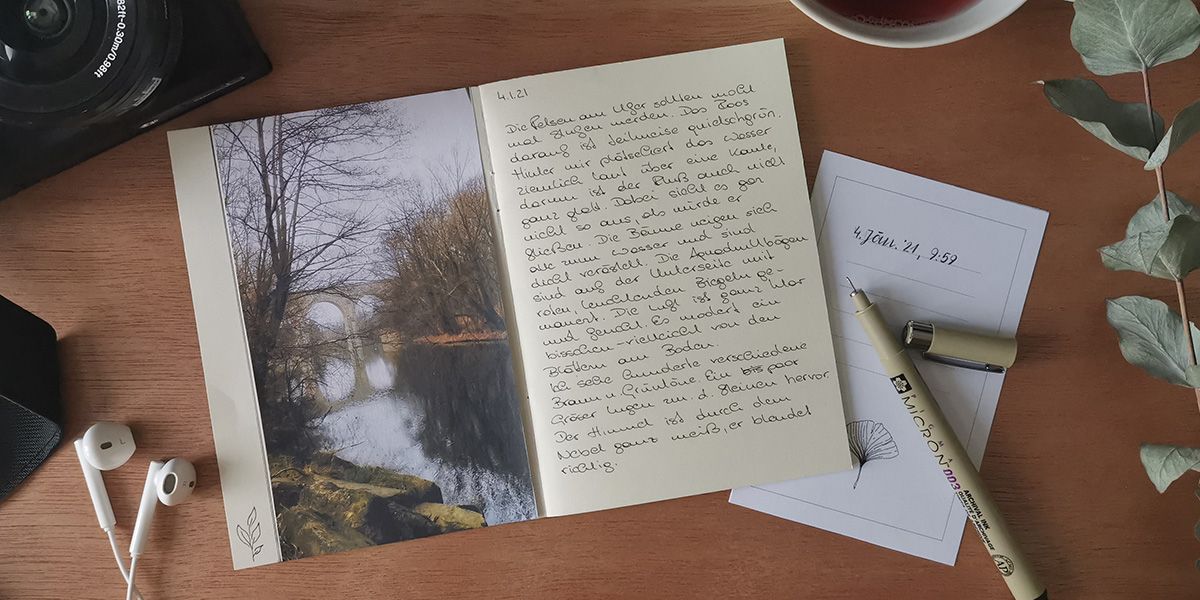 82ft-0.30m/0.98ft
4.1.21
Die Felsen am Ufer sollten wohl
mal Stufen werden. Das Moos
darauf ist teilweise quietschgrün.
Hinter mir plätschert das Wasser
ziemlich laut über eine Kante,
darum ist der Fluß auch nicht
ganz glatt. Dabei sieht es gar
nicht so aus, als würde er
fließen. Die Bäume neigen sich
alle zum Wasser und sind
dicht verästelt. Die Aquäduktbögen
sind auf der Unterseite mit
roten, leuchtenden Ziegeln ge-
mauert. Die Luft ist ganz klar
und feucht. Es modert ein
bisschen – vielleicht von den
Blättern am Boden.
Ich sehe hunderte verschiedene
Braun u. Grüntöne. Ein paar
Gräser lugen zw. d. Steinen hervor.
Der Himmel ist durch den
Nebel ganz weiß, er blendet
richtig.
4. Jän. '21, 9:59
SAKURA
MICRON 003
ARCHIVAL INK
QUALITÉ D'ARCHIVAGE
AP
L